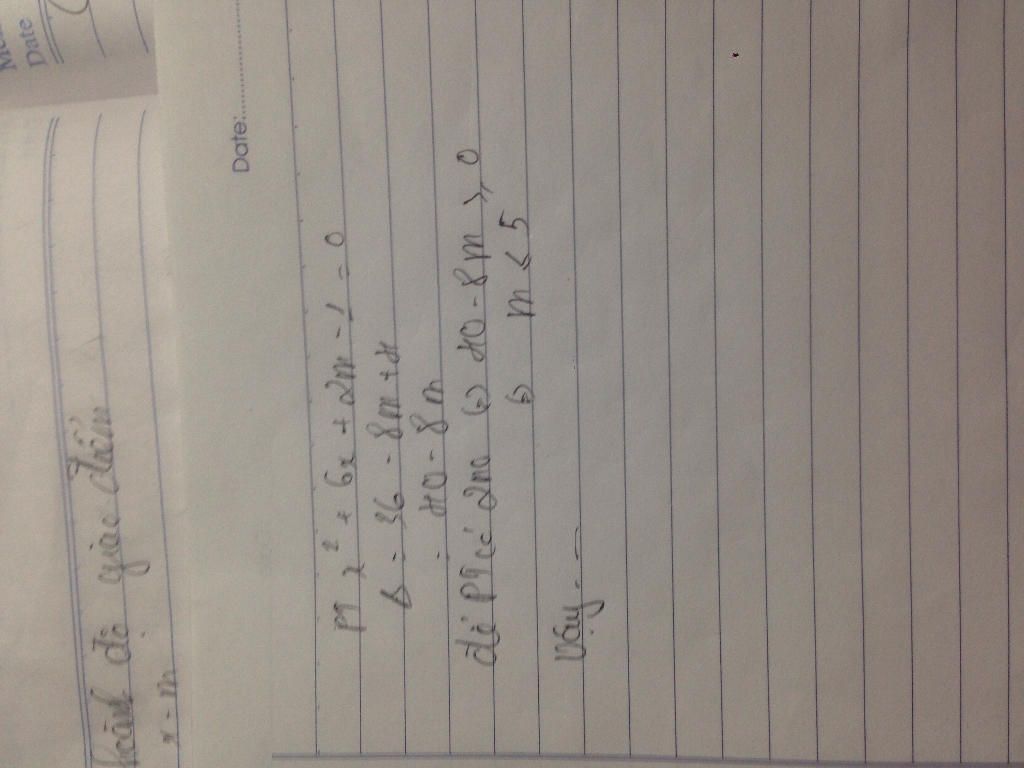 Date
hoành độ giao điểm
Date:
PT x² + 6x + 2m - 1 = 0
Δ = 36 - 8m + 4
= 40 - 8m
để PT có 2 no ⇔ 40 - 8m ⩾ 0
⇔ m ⩽ 5
Vậy - -